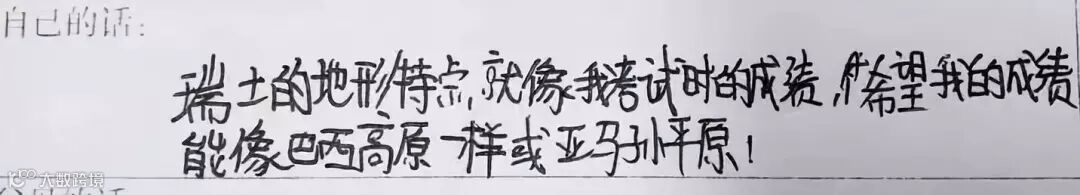 自己的话:
瑞士的地形特点,就像我考试时的成绩,希望我的成绩
能像巴西高原一样或亚马孙平原!
大数跨境